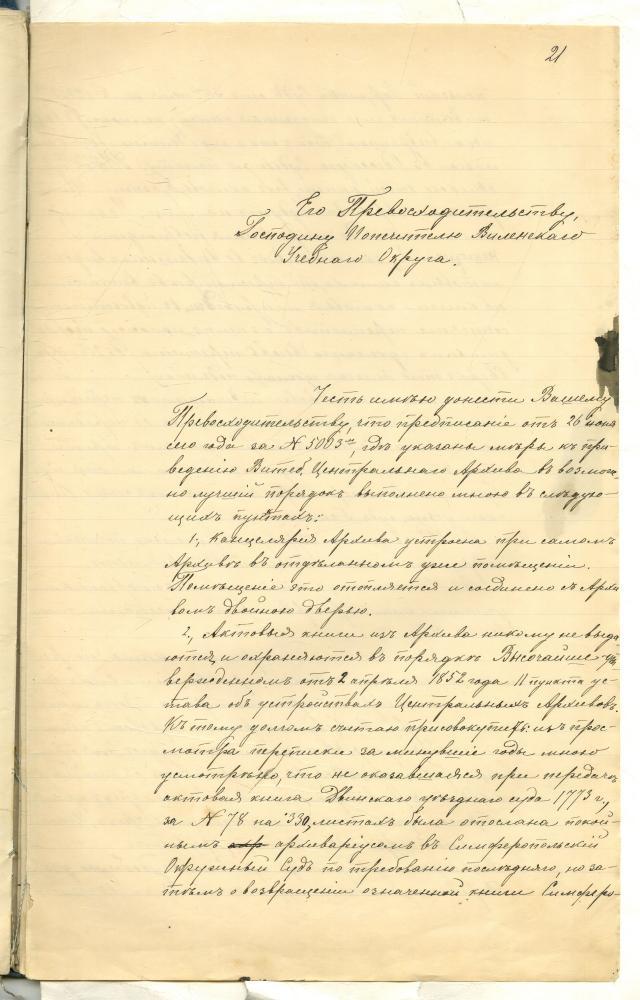 21
Его Превосходительству,
Господину Попечителю Виленскаго
Учебнаго Округа.
Честь имѣю донести Вашему
Превосходительству, что предписаніе отъ 26 іюня
сего года за № 5003мъ, гдѣ указаны мѣры къ при-
ведению Витеб. Центральнаго Архива въ возмож-
но лучшій порядокъ выполнено мною въ слѣдую-
щихъ пунктахъ:
1., Канцелярія Архива устроена при самомъ
Архивѣ въ отдѣланномъ уже помѣщеніи.
Помѣщеніе это отопляется и соединено съ Архи-
вомъ двойною дверью.
2., Актовыя книги изъ Архива никому не выда-
ются, и охраняются въ порядкѣ Высочайше ут-
вержденномъ отъ 2 апрѣля 1852 года 11 пункта ус-
тава объ устройствахъ Центральныхъ Архивовъ.
Къ тому долгомъ считаю присовокупить: изъ прос-
мотра переписки за минувшіе годы мною
усмотрѣно, что не оказавшаяся при передачѣ
актовая книга Двинскаго уѣзднаго суда 1773 г.,
за № 78 на 330 листахъ была отослана покой-
нымъ архиваріусомъ въ Симферопольскій
Окружный Судъ по требованію послѣдняго, но за-
тѣмъ о возвращеніи означенной книги Симферо-